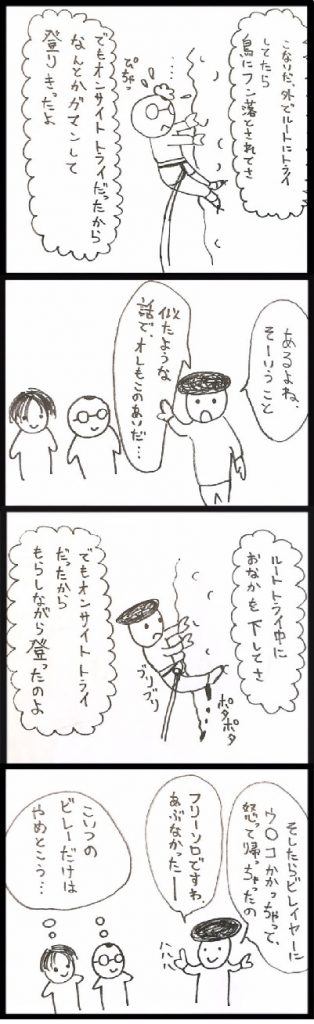 こないだ、外でルートにトライ
してたら
鳥にフン落とされてさ
ぴちゃっ
でもオンサイトトライだったから
なんとかガマンして
登りきったよ
あるよね、
そーいうこと
似たような
話で、オレもこのあいだ…
ルートトライ中に
おなかを下してさ
ブリブリ
ポタポタ
でもオンサイトトライ
だったから
もらしながら登ったのよ
そしたらビレイヤーに
ウ〇コかかっちゃって、
怒って帰っちゃったの
フリーソロですわ、
あぶなかったー
ハハハ
こいつの
ビレーだけは
やめとこう…